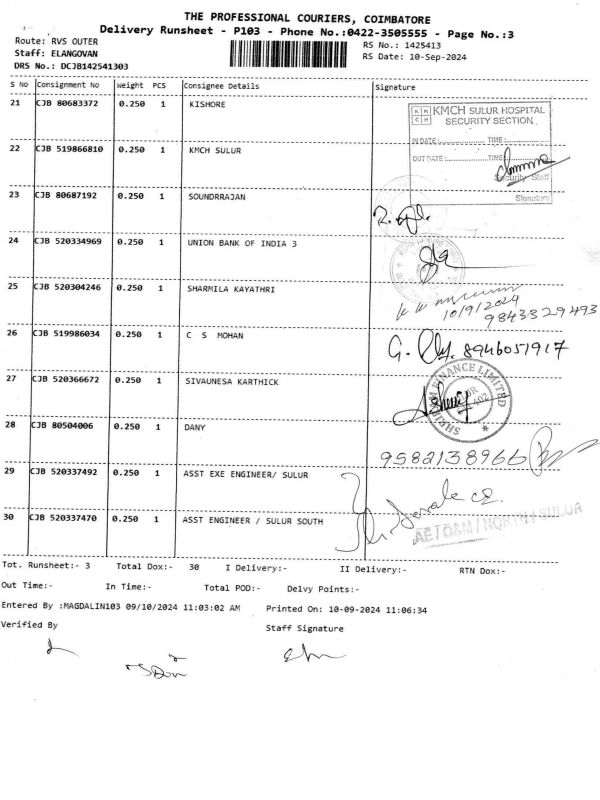 THE PROFESSIONAL COURIERS, COIMBATORE
Delivery Runsheet - P103 - Phone No.:0422-3505555 - Page No.:3
Route: RVS OUTER
Staff: ELANGOVAN
DRS No.: DCJB142541303
RS No.: 1425413
RS Date: 10-Sep-2024
S No Consignment No Weight PCS Consignee Details Signature
21 CJB 80683372 0.250 1 KISHORE
KMCH SULUR HOSPITAL
SECURITY SECTION
IN DATE:.............. TIME:..............
22 CJB 519866810 0.250 1 KMCH SULUR
OUT DATE:.............. TIME
Security Staff
Signature
23 CJB 80687192 0.250 1 SOUNDRRAJAN
24 CJB 520334969 0.250 1 UNION BANK OF INDIA 3
25 CJB 520304246 0.250 1 SHARMILA KAYATHRI
10/9/2024
9843329493
26 CJB 519986034 0.250 1 C S MOHAN
8946051917
27 CJB 520366672 0.250 1 SIVAUNESA KARTHICK
SHRIRAM FINANCE LIMITED
28 CJB 80504006 0.250 1 DANY
9582138966
29 CJB 520337492 0.250 1 ASST EXE ENGINEER/ SULUR
30 CJB 520337470 0.250 1 ASST ENGINEER / SULUR SOUTH
AE/O&M/NORTH/SULUR
Tot. Runsheet:- 3 Total Dox:- 30 I Delivery:- II Delivery:- RTN Dox:-
Out Time:- In Time:- Total POD:- Delvy Points:-
Entered By :MAGDALIN103 09/10/2024 11:03:02 AM Printed On: 10-09-2024 11:06:34
Verified By Staff Signature